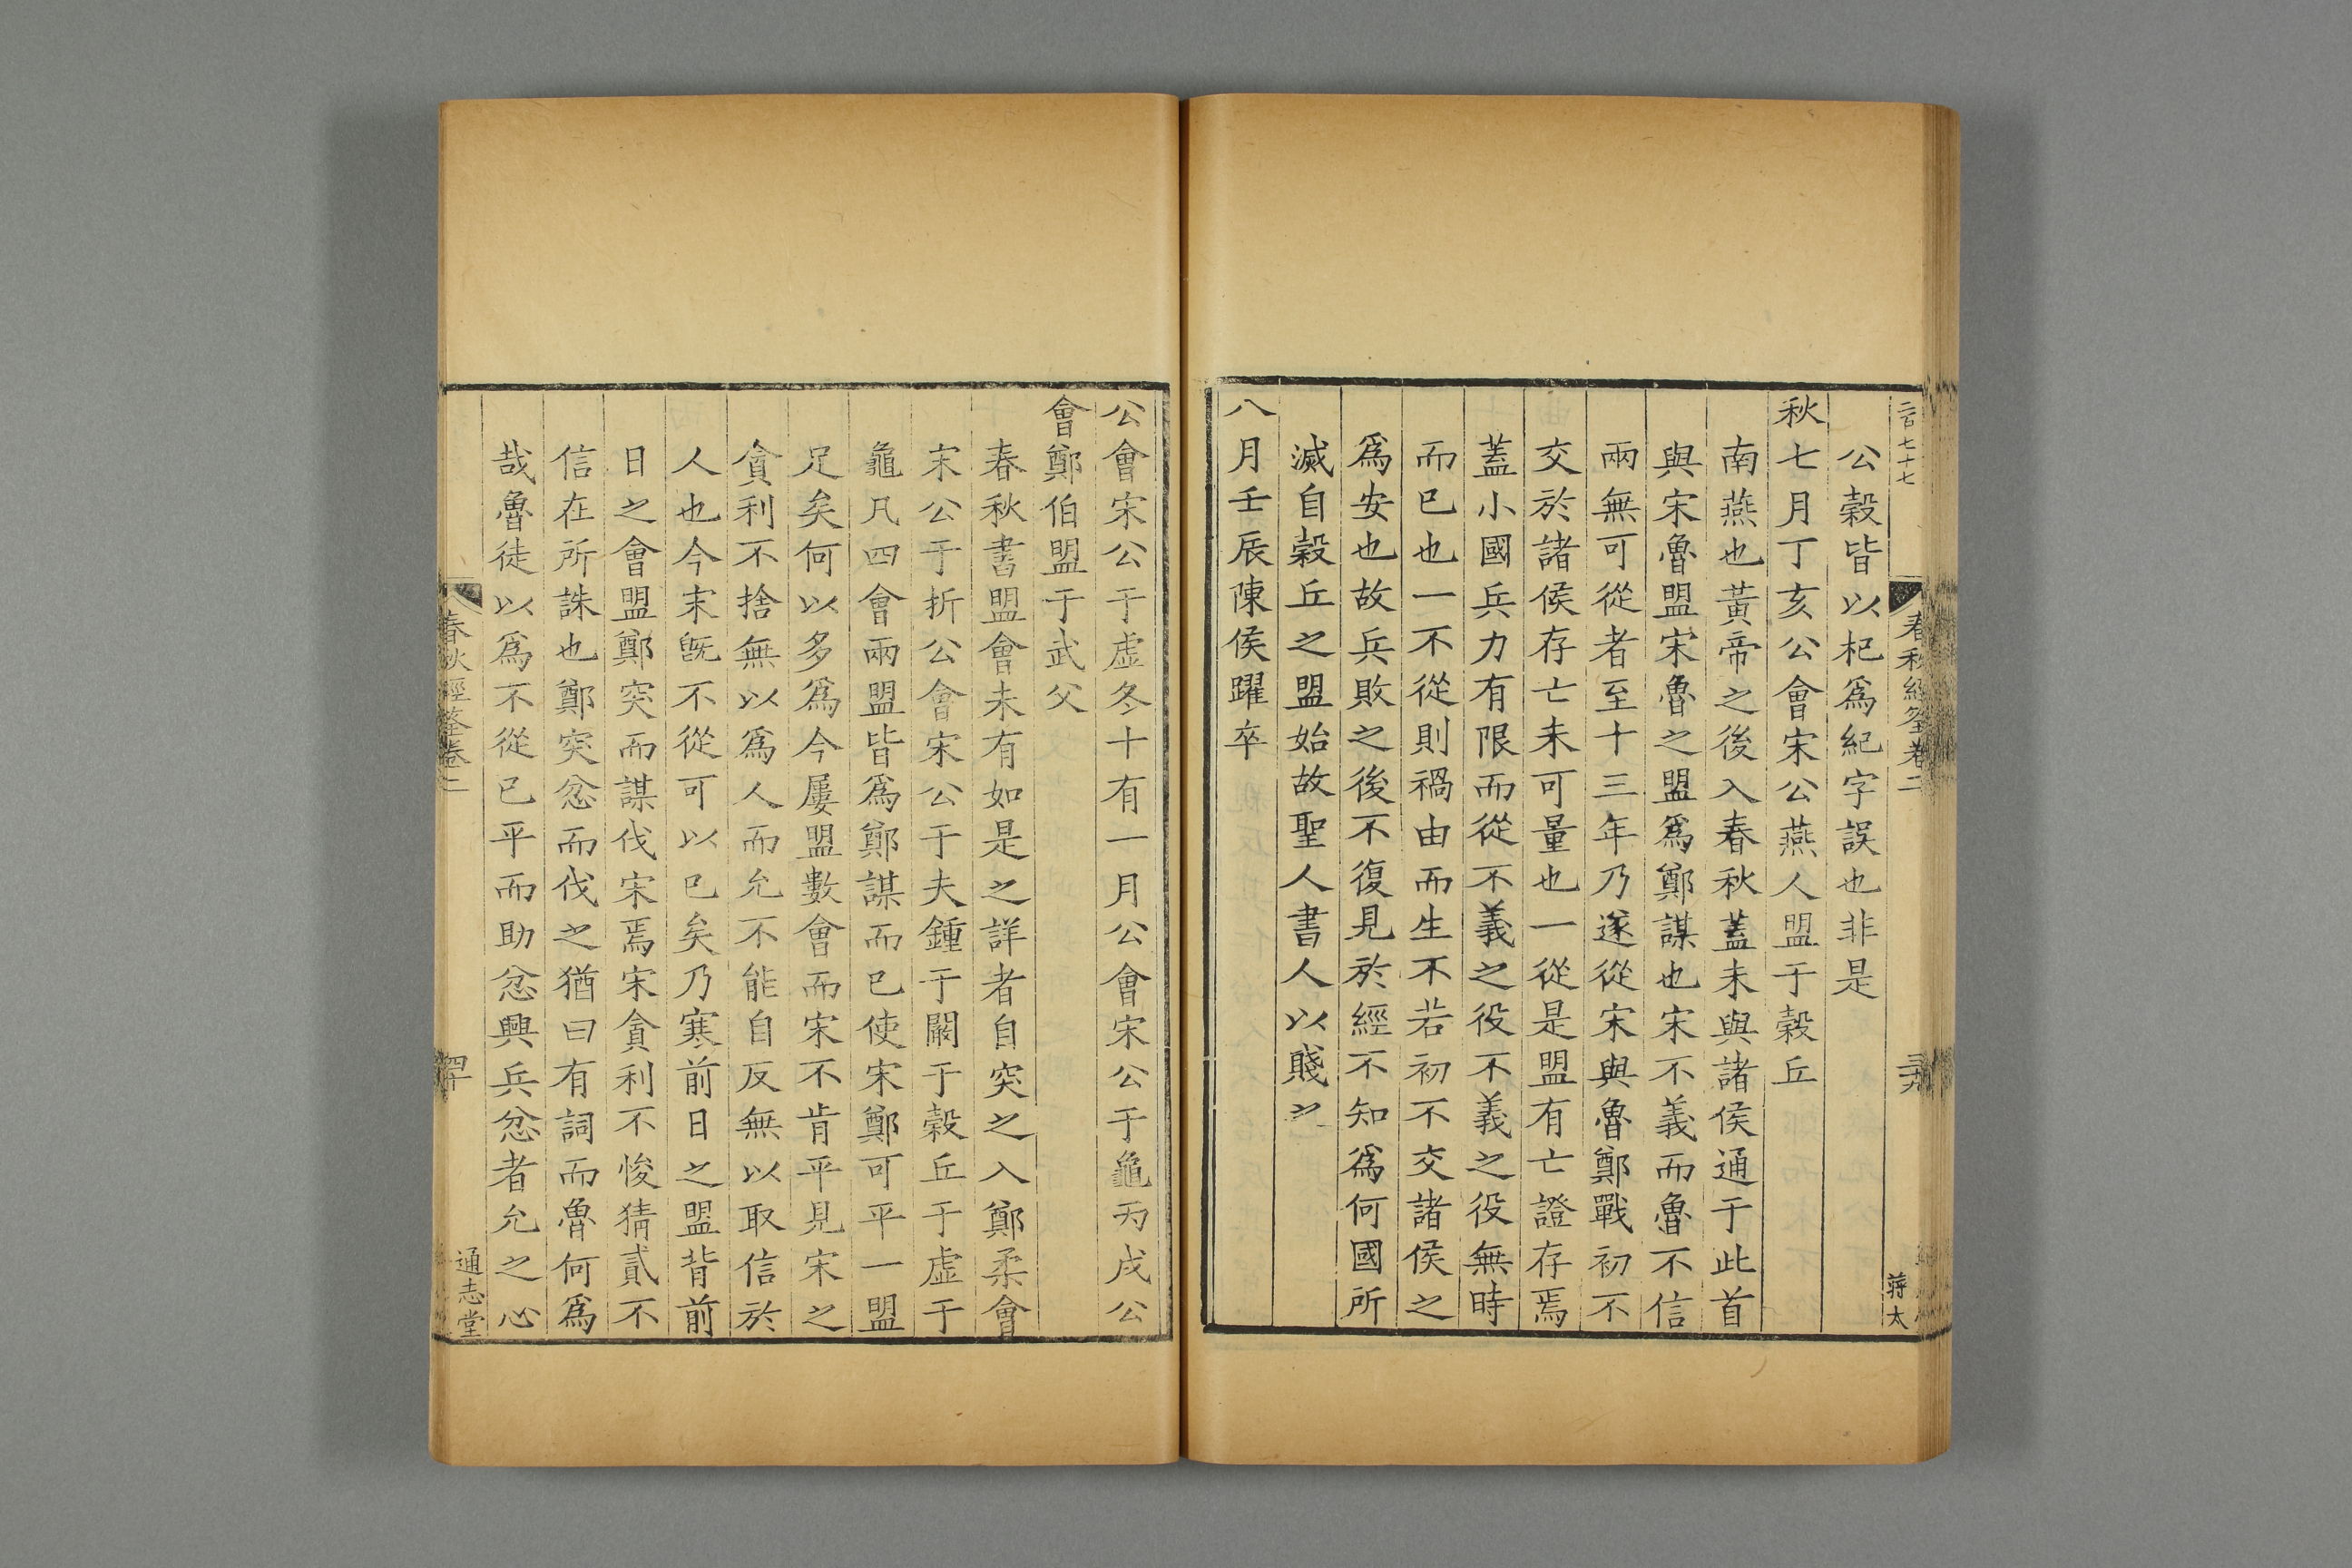 二百七十七
春秋經筌卷二
三九
蒋太
公穀皆以杞爲紀字誤也非是
秋七月丁亥公會宋公燕人盟于穀丘
南燕也黃帝之後入春秋蓋未與諸侯通于此首
與宋魯盟宋魯之盟爲鄭謀也宋不義而魯不信
兩無可從者至十三年乃遂從宋與魯鄭戰初不
交於諸侯存亡未可量也一從是盟有亡證存焉
蓋小國兵力有限而從不義之役不義之役無時
而已也一不從則禍由而生不若初不交諸侯之
爲安也故兵敗之後不復見於經不知爲何國所
滅自穀丘之盟始故聖人書人以賤之
八月壬辰陳侯躍卒
公會宋公于虛冬十有一月公會宋公于龜丙戌公
會鄭伯盟于武父
春秋書盟會未有如是之詳者自突之入鄭柔會
宋公于折公會宋公于夫鍾于闞于穀丘于虛于
龜凡四會兩盟皆爲鄭謀而已使宋鄭可平一盟
足矣何以多爲今屢盟數會而宋不肯平見宋之
貪利不捨無以爲人而允不能自反無以取信於
人也今宋旣不從可以已矣乃寒前日之盟背前
日之會盟鄭突而謀伐宋焉宋貪利不悛猜貳不
信在所誅也鄭突忿而伐之猶曰有詞而魯何爲
哉魯徒以爲不從已平而助忿興兵忿者允之心
春秋經筌卷二
四十
通志堂